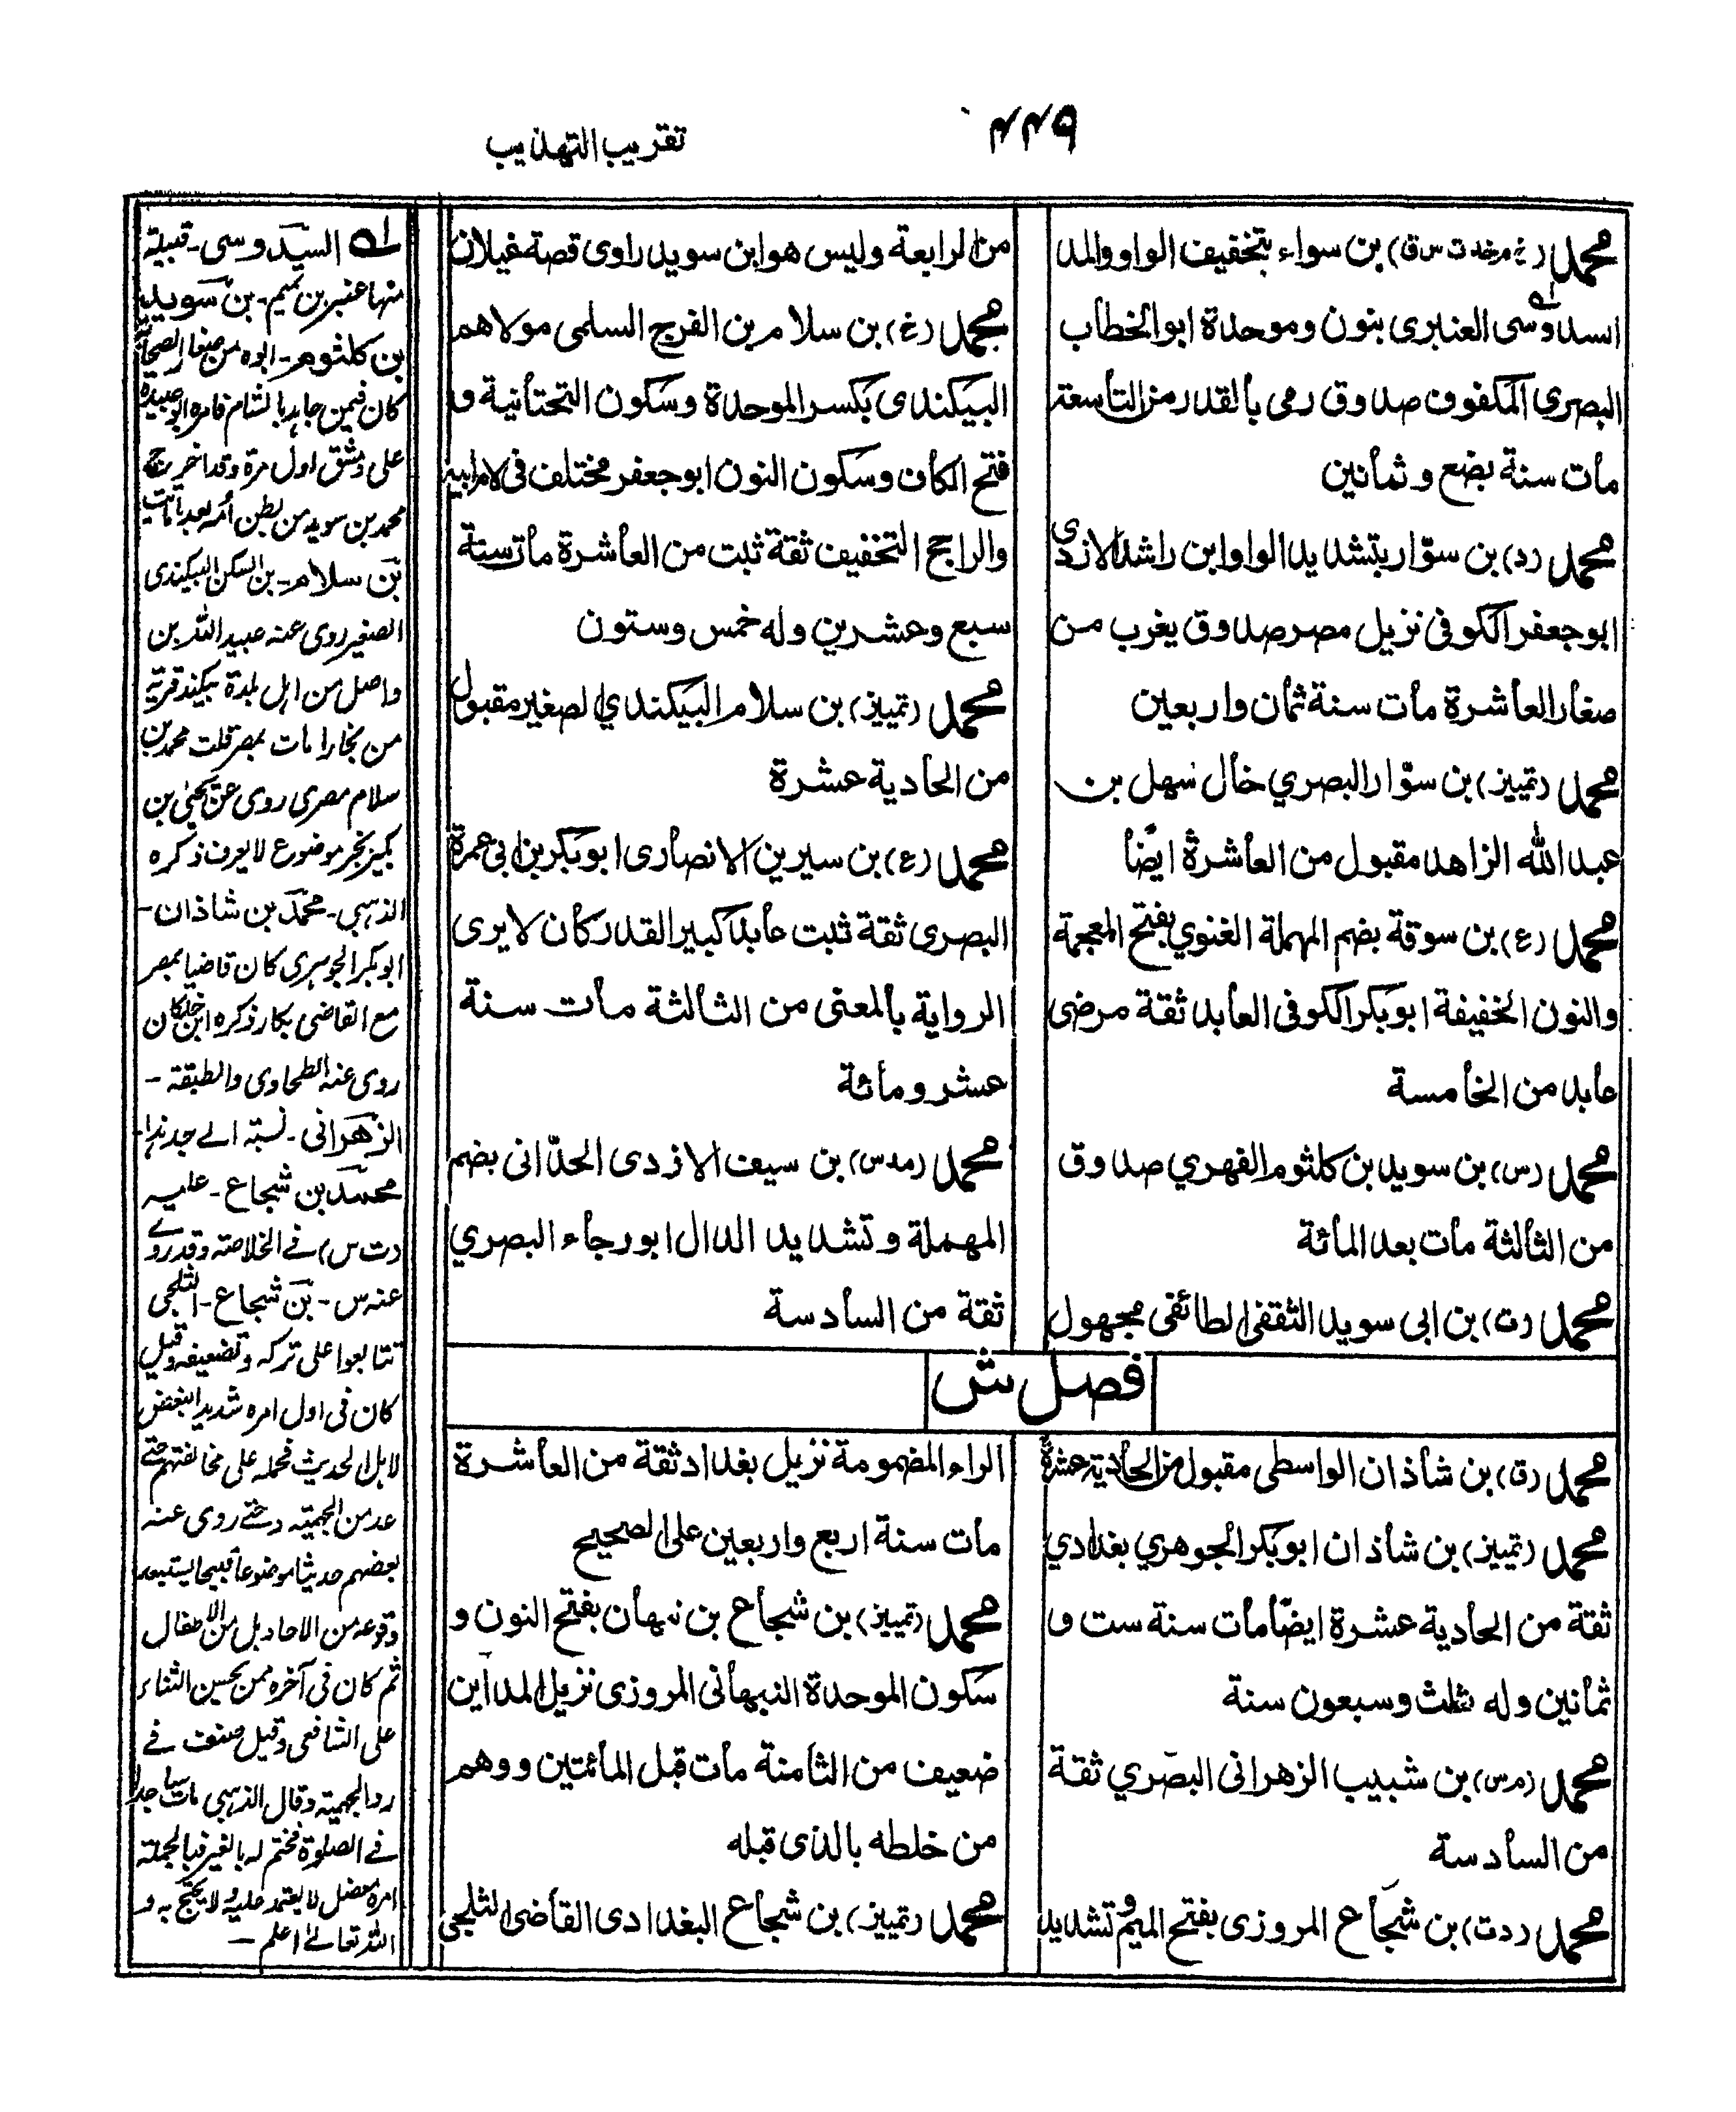 ۴۴۹
تقريب التهذيب
محمد (خ م خد ت س ق) بن سواء بتخفيف الواو والمد
السدوسى العنبرى بنون وموحدة ابو الخطاب
البصري المكفوف صدوق رمى بالقدر من التاسعة
مات سنة بضع وثمانين
محمد (د) بن سوّار بتشديد الواو ابن راشد الازدى
ابو جعفر الكوفى نزيل مصر صدوق يغرب من
صغار العاشرة مات سنة ثمان واربعين
محمد (تمييز) بن سوّار البصري خال سهل بن
عبد الله الزاهد مقبول من العاشرة ايضًا
محمد (ع) بن سوقة بضم المهملة الغنوي بفتح المعجمة
والنون الخفيفة ابو بكر الكوفى العابد ثقة مرضى
عابد من الخامسة
محمد (س) بن سويد بن كلثوم الفهري صدوق
من الثالثة مات بعد المائة
محمد (ت) بن ابى سويد الثقفى الطائفى مجهول
من الرابعة وليس هو ابن سويد راوى قصة غيلان
محمد (خ) بن سلام بن الفرج السلمى مولاهم
البيكندى بكسر الموحدة وسكون التحتانية و
فتح الكاف وسكون النون ابو جعفر مختلف فى لام ابيه
والراجح التخفيف ثقة ثبت من العاشرة مات سنة
سبع وعشرين وله خمس وستون
محمد (تمييز) بن سلام البيكندي الصغير مقبول
من الحادية عشرة
محمد (ع) بن سيرين الانصارى ابو بكر بن ابى عمرة
البصرى ثقة ثبت عابد كبير القدر كان لا يرى
الرواية بالمعنى من الثالثة مات سنة
عشر ومائة
محمد (مد س) بن سيف الازدى الحدّانى بضم
المهملة وتشديد الدال ابو رجاء البصري
ثقة من السادسة
فصل ش
محمد (ق) بن شاذان الواسطى مقبول من الحادية عشرة
محمد (تمييز) بن شاذان ابو بكر الجوهري بغدادي
ثقة من الحادية عشرة ايضًا مات سنة ست و
ثمانين وله ثلث وسبعون سنة
محمد (م س) بن شبيب الزهرانى البصري ثقة
من السادسة
محمد (د ت) بن شجاع المروزى بفتح الميم وتشديد
الراء المضمومة نزيل بغداد ثقة من العاشرة
مات سنة اربع واربعين على الصحيح
محمد (تمييز) بن شجاع بن نبهان بفتح النون و
سكون الموحدة النبهانى المروزى نزيل المداين
ضعيف من الثامنة مات قبل المائتين ووهم
من خلطه بالذى قبله
محمد (تمييز) بن شجاع البغدادى القاضى الثلجى
له السدوسى - قبيلة
منها عنبر بن تميم - بن سويد
بن كلثوم - ابوه من صغار الصحابة
كان فيمن جاهد بالشام فامره ابو عبيدة
على دمشق اول مرة وقد اخرج
محمد بن سويد من بطن امه بعد ماتت
بن سلام - بن السكن البيكندى
الصغير روى عنه عبيد الله بن
واصل من اهل بلدة بيكند قرية
من بخارا مات بمصر قلت محمد بن
سلام مصرى روى عن يحيى بن
بكير بخبر موضوع لا يعرف ذكره
الذهبي - محمد بن شاذان -
ابو بكر الجوهرى كان قاضيا بمصر
مع القاضى بكار ذكره ابن خلكان
روى عنه الطحاوى والطبقة -
الزهرانى - نسبة الى جد زهران
محمد بن شجاع - عليه
(د ت س) فے الخلاصة وقد روے
عنه س - بن شجاع - الثلجى
تتابعوا على تركه وتضعيفه وقيل
كان فى اول امره شديد البغض
لاهل الحديث فحمله على مخالفتهم حتے
عد من الجهمية حتے روى عنه
بعضهم حديثا موضوعا قبيحا يستبعد
وقوعه من الاحاد بل من الاطفال
ثم كان فى آخره ممن يحسن الثناء
على الشافعى وقيل صنف فے
رد الجهمية وقال الذهبى مات ساجدا
فے الصلوة فختم له بالخير فبالجملة
امره معضل لا يعتمد عليه ولا يحتج به و
الله تعالے اعلم -